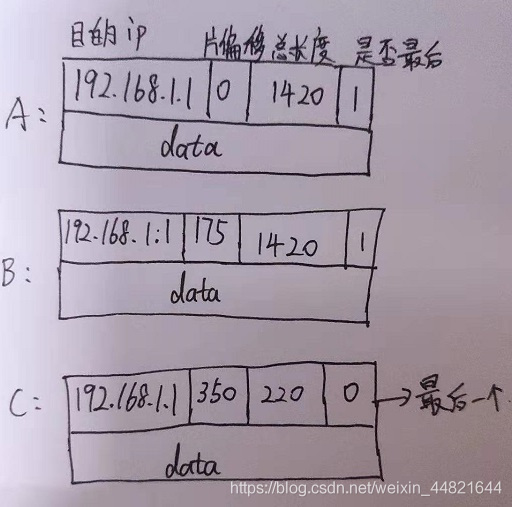 目的ip 片偏移 总长度 是否最后
A: 192.168.1.1 0 1420 1
data
B: 192.168.1:1 175 1420 1
data
C: 192.168.1.1 350 220 0 →最后一个
data
https://blog.csdn.net/weixin_44821644